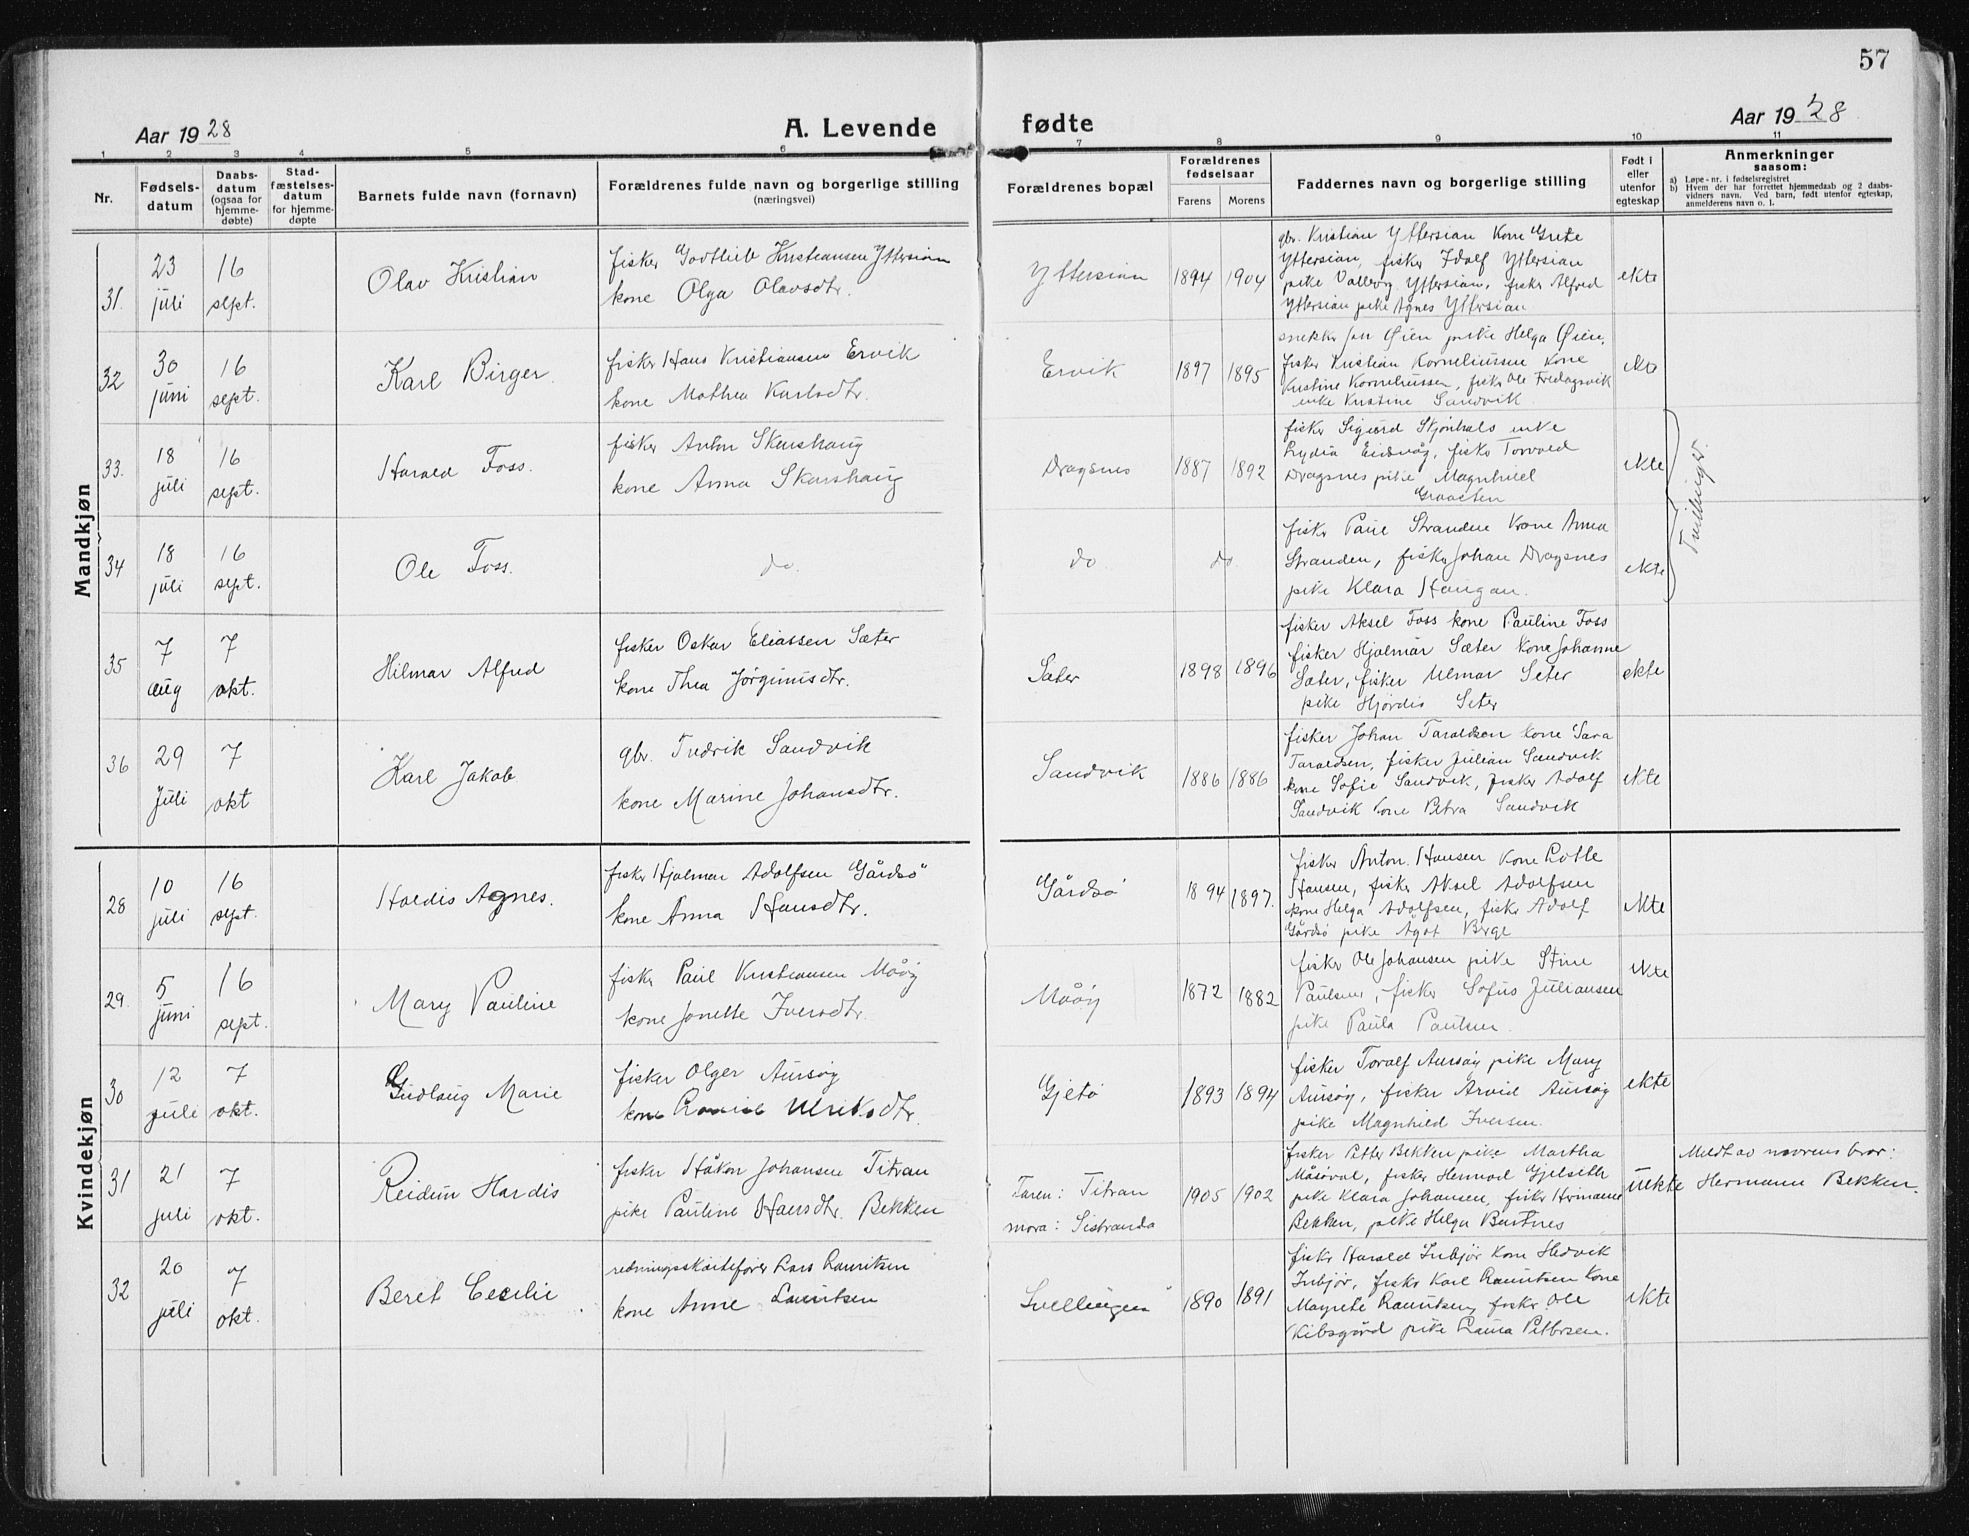 57
Aar 1928
A. Levende fødte
Aar 1928
1 2 3 4 5 6 7 8 9 10 11
Nr.
Fødsels-
datum
Daabs-
datum
(ogsaa for
hjemme-
døbte)
Stad-
fæstelses-
datum
for hjemme-
døpte
Barnets fulde navn (fornavn)
Forældrenes fulde navn og borgerlige stilling
(næringsvei)
Forældrenes bopæl
Forældrenes
fødselsaar
Farens
Morens
Faddernes navn og borgerlige stilling
Født i
eller
utenfor
egteskap
Anmerkninger
saasom:
a) Løpe-nr. i fødselsregistret
b) Hvem der har forrettet hjemmedaab og 2 daabs-
vidners navn. Ved barn, født utenfor egteskap,
anmelderens navn o. l.
Mandkjøn
31.
23
juli
16
sept.
Olav Kristian
fisker Godtlieb Kristiansen Yttersian
kone Olga Olavsdtr.
Yttersian
1894
1904
gbr. Kristian Yttersian Kone Grete
Yttersian, fisker Idolf Yttersian
pike Valborg Yttersian, fisker Alfred
Yttersian pike Agnes Yttersian
ekte
32
30
juni
16
sept.
Karl Birger
fisker Hans Kristiansen Ervik
kone Mathea Karlsdtr.
Ervik
1897
1895
snekker Jon Øien pike Helga Øien,
fisker Kristian Korneliussen kone
Kristine Korneliussen, fisker Ole Fredagsvik
enke Kristine Sandvik
ekte
33.
18
juli
16
sept.
Harald Foss.
fisker Anton Skarshaug
kone Anna Skarshaug
Dragsnes
1887
1892
fisker Sigurd Skjønhals enke
Lydia Eidsvåg, fisker Torvald
Dragsnes pike Magnhild
Graaeten
ekte
Tvillinger.
34
18
juli
16
sept.
Ole Foss.
do.
do
do
fisker Paul Stranden Krone Anna
Stranden, fisker Johan Dragsnes
pike Klara Haugan.
ekte
35
7
aug
7
okt.
Hilmar Alfred
fisker Oskar Eliassen Sæter
kone Thea Jørginusdtr.
Sæter
1898
1896
fisker Aksel Foss kone Pauline Foss
fisker Hjalmar Sæter Kone Johanne
Sæter, fisker Ulmar Seter
pike Hjørdis Seter
ekte
36
29
Juli
7
okt
Karl Jakob
gbr. Fredrik Sandvik
kone Marine Johansdtr.
Sandvik
1886
1886
fisker Johan Taraldsen kone Sara
Taraldsen, fisker Julian Sandvik
kone Sofie Sandvik, fisker Adolf
Sandvik kone Petra Sandvik
ekte
Kvindekjøn
28
10
juli
16
sept.
Haldis Agnes.
fisker Hjalmar Adolfsen Gårdsø
kone Anna Hansdtr.
Gårdsø
1894
1897.
fisker Anton Hansen Kone Lotte
Hansen, fisker Aksel Adolfsen
kone Helga Adolfsen, fisker Adolf
Gårdsø pike Ågot Berge
ekte
29.
5
juni
16
sept.
Mary Pauline
fisker Paul Kristiansen Måøy
kone Jonette Iversdtr.
Måøy
1872
1882
fisker Ole Johansen pike Stine
Paulsen, fisker Sofus Juliansen
pike Paula Paulsen.
ekte
30
12
juli
7
okt.
Gudlaug Marie
fisker Olger Aursøy
kone Ulriksdtr.
Gjetø
1893
1894
fisker Toralf Aursøy pike Mary
Aursøy, fisker Arvid Aursøy
pike Magnhild Iversen.
ekte
31
21
juli
7
okt.
Reidun Hardis
fisker Håkon Johansen Titran
pike Pauline Hansdtr. Bekken
Faren: Titran
mora: Sistranda
1905
1902
fisker Petter Bekken pike Martha
Måsøval, fisker Henvod Gjelseth
pike Klara Johansen, fisker Hermann
Bekken, pike Helga Bustnes
uekte
Meldt av morens bror:
Hermann Bekken.
32
20
juli
7
okt.
Beret Cecilie
redningsskøitefører Lars Lauritsen
kone Anne Lauritsen
Svellingen
1890
1891
fisker Harald Inbjør kone Hedvik
Inbjør, fisker Karl Lauritsen kone
Magrete Lauritsen, fisker Ole
Kibsgård pike Laura Pettersen.
ekte